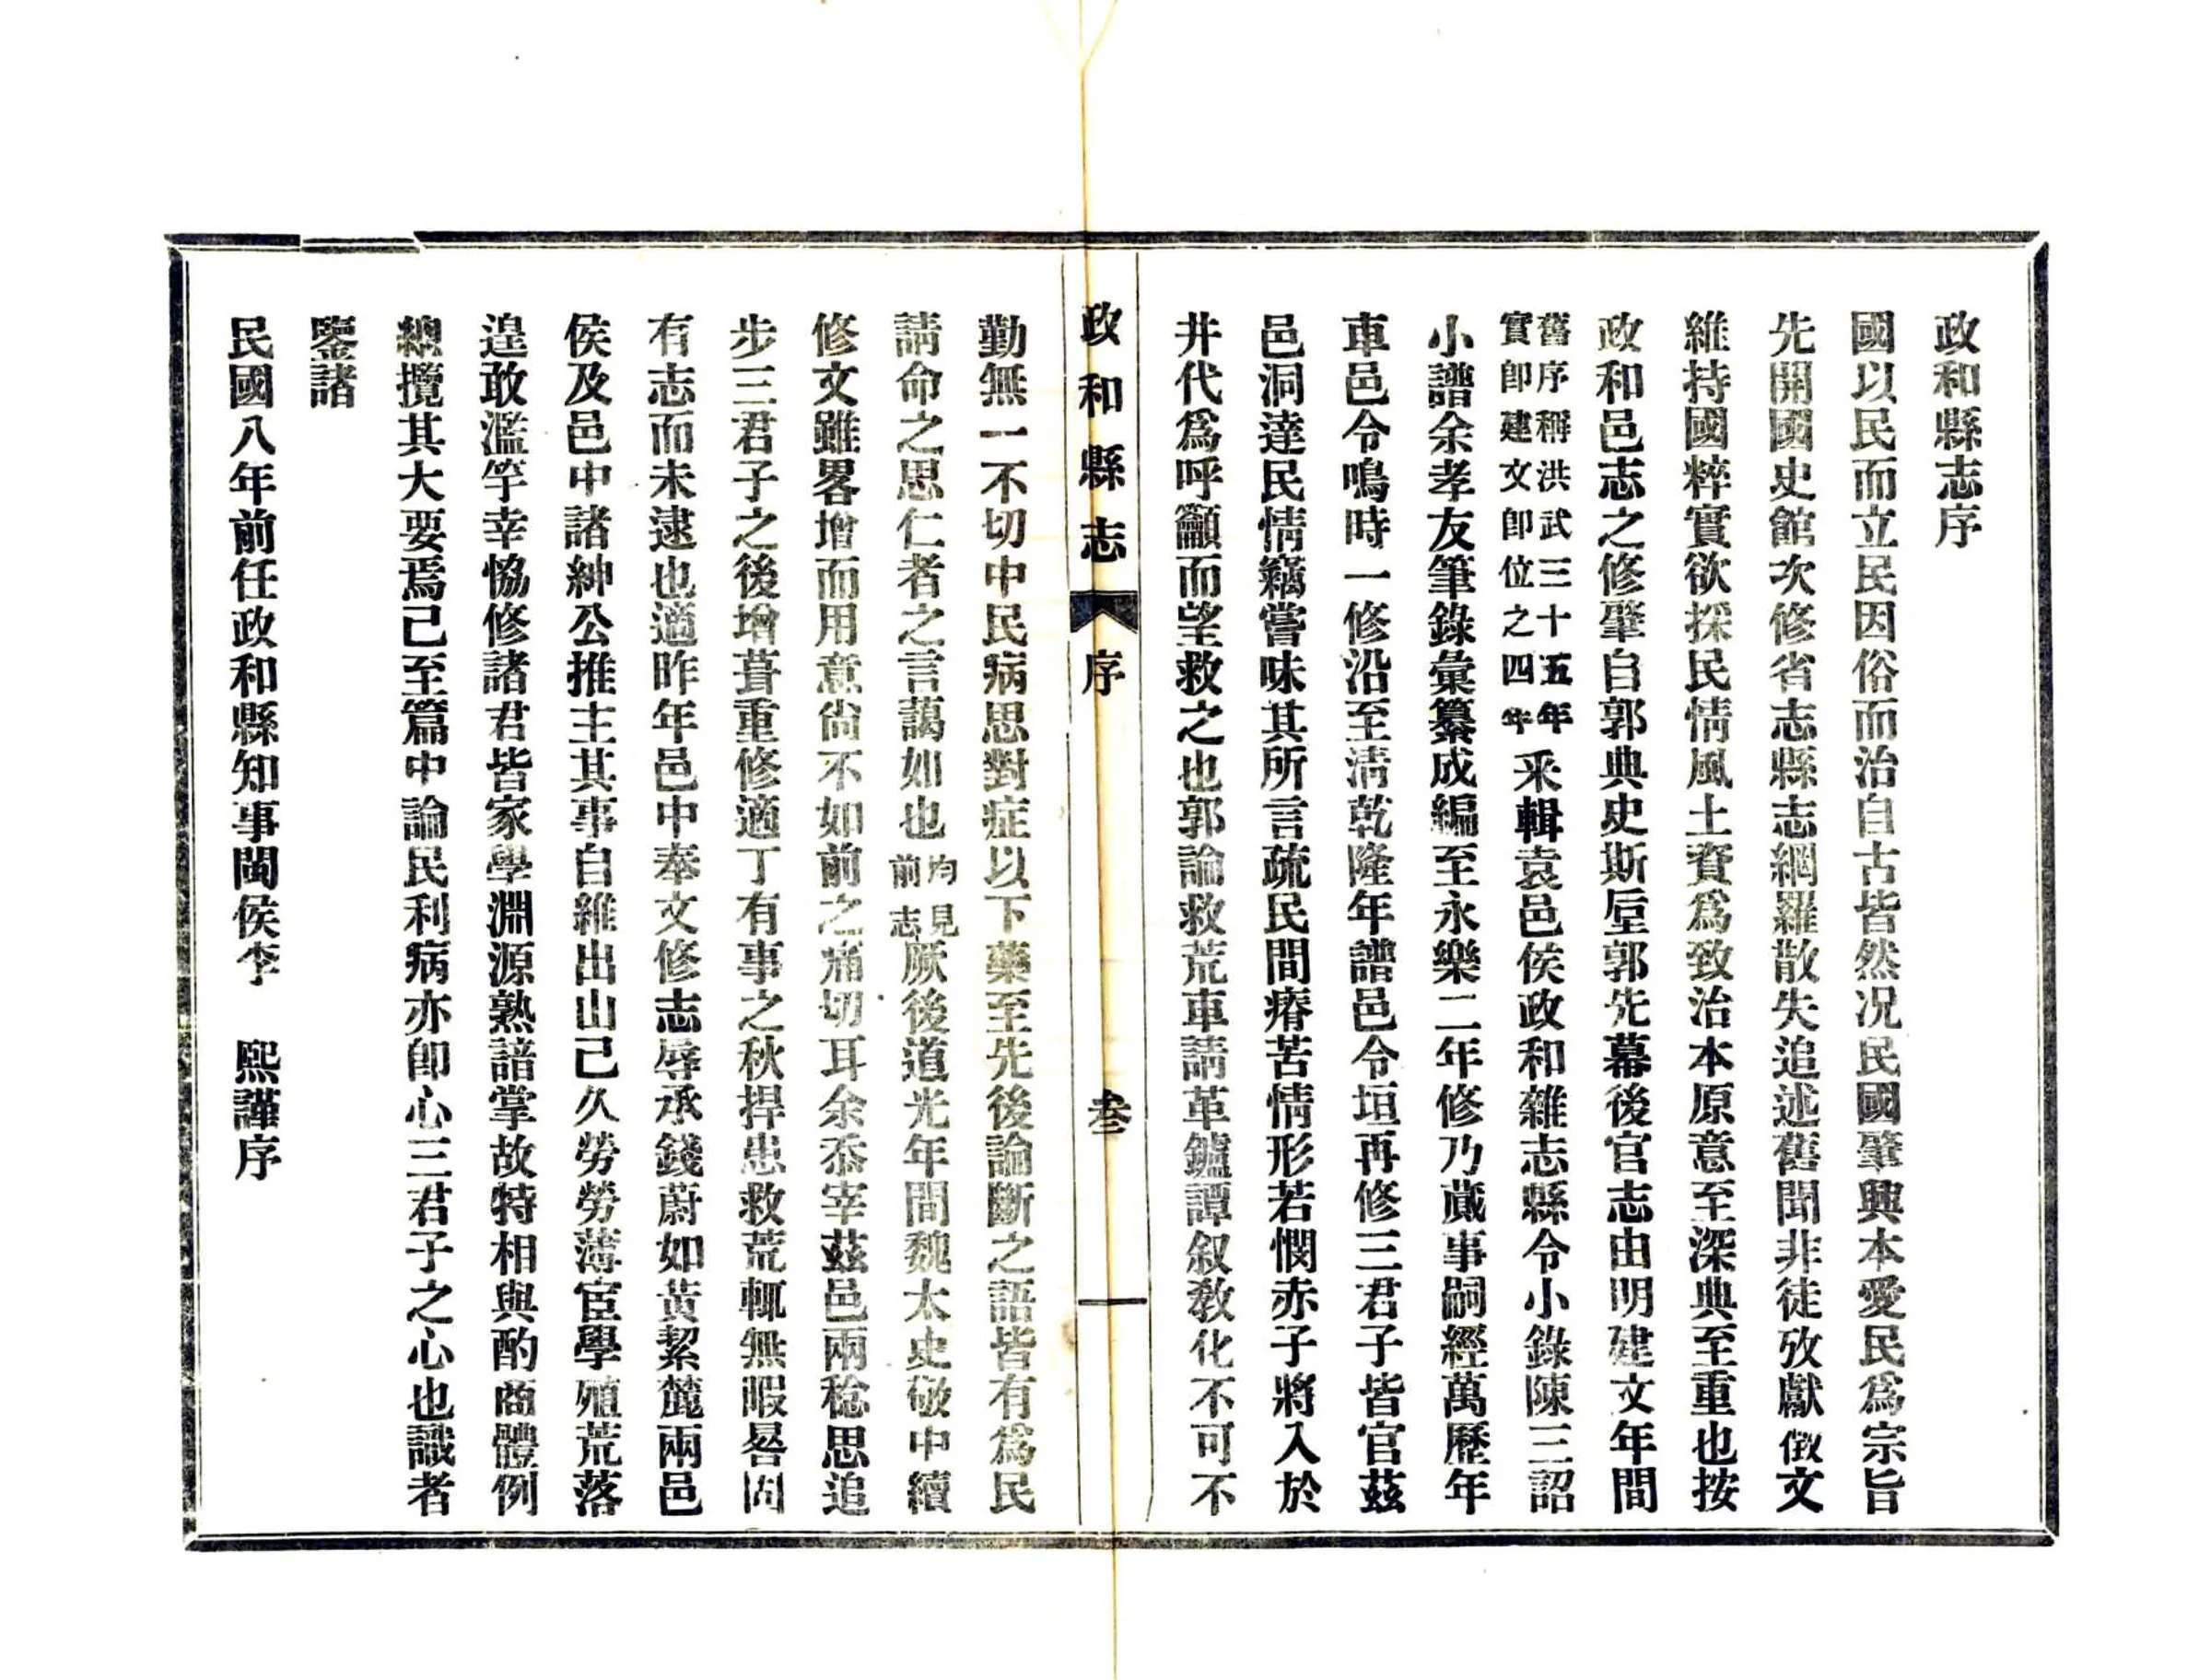 政和縣志序
國以民而立民因俗而治自古皆然况民國肇興本愛民爲宗旨
先開國史館次修省志縣志網羅散失追述舊聞非徒攷獻徵文
維持國粹實欲採民情風土資爲致治本原意至深典至重也按
政和邑志之修肇自郭典史斯垕郭先幕後官志由明建文年間
舊序稱洪武三十五年
實卽建文卽位之四年
采輯袁邑侯政和雜志縣令小錄陳三詔
小譜余孝友筆錄彙纂成編至永樂二年修乃蕆事嗣經萬歷年
車邑令鳴時一修沿至淸乾隆年譜邑令垣再修三君子皆官茲
邑洞達民情竊嘗味其所言疏民間瘠苦情形若憫赤子將入於
井代爲呼籲而望救之也郭論救荒車請革鑪譚叙敎化不可不
政和縣志 序 叁
勤無一不切中民病思對症以下藥至先後論斷之語皆有爲民
請命之思仁者之言藹如也
均見
前志
厥後道光年間魏太史敬中續
修文雖畧增而用意尙不如前之痛切耳余忝宰茲邑兩稔思追
步三君子之後增葺重修適丁有事之秋捍患救荒輒無暇晷固
有志而未逮也適昨年邑中奉文修志辱承錢蔚如黃絜箎兩邑
侯及邑中諸紳公推主其事自維出山已久勞勞薄宦學殖荒落
遑敢濫竽幸恊修諸君皆家學淵源熟諳掌故特相與酌商體例
總攬其大要焉已至篇中論民利病亦卽心三君子之心也識者
鑒諸
民國八年前任政和縣知事閩侯李 熙謹序